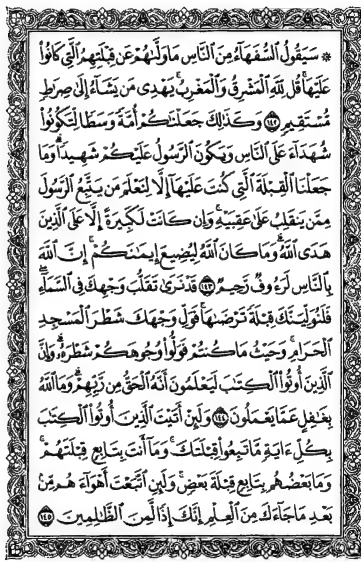 ۞ سَيَقُولُ ٱلسُّفَهَآءُ مِنَ ٱلنَّاسِ مَا وَلَّىٰهُمْ عَن قِبْلَتِهِمُ ٱلَّتِي كَانُواْ
عَلَيْهَاۚ قُل لِّلَّهِ ٱلْمَشْرِقُ وَٱلْمَغْرِبُۚ يَهْدِي مَن يَشَآءُ إِلَىٰ صِرَٰطٖ
مُّسْتَقِيمٖ ١٤٢ وَكَذَٰلِكَ جَعَلْنَٰكُمْ أُمَّةٗ وَسَطٗا لِّتَكُونُواْ
شُهَدَآءَ عَلَى ٱلنَّاسِ وَيَكُونَ ٱلرَّسُولُ عَلَيْكُمْ شَهِيدٗاۗ وَمَا
جَعَلْنَا ٱلْقِبْلَةَ ٱلَّتِي كُنتَ عَلَيْهَآ إِلَّا لِنَعْلَمَ مَن يَتَّبِعُ ٱلرَّسُولَ
مِمَّن يَنقَلِبُ عَلَىٰ عَقِبَيْهِۚ وَإِن كَانَتْ لَكَبِيرَةً إِلَّا عَلَى ٱلَّذِينَ
هَدَى ٱللَّهُۗ وَمَا كَانَ ٱللَّهُ لِيُضِيعَ إِيمَٰنَكُمْۚ إِنَّ ٱللَّهَ
بِٱلنَّاسِ لَرَءُوفٞ رَّحِيمٞ ١٤٣ قَدْ نَرَىٰ تَقَلُّبَ وَجْهِكَ فِي ٱلسَّمَآءِۖ
فَلَنُوَلِّيَنَّكَ قِبْلَةٗ تَرْضَىٰهَاۚ فَوَلِّ وَجْهَكَ شَطْرَ ٱلْمَسْجِدِ
ٱلْحَرَامِۚ وَحَيْثُ مَا كُنتُمْ فَوَلُّواْ وُجُوهَكُمْ شَطْرَهُۥۗ وَإِنَّ
ٱلَّذِينَ أُوتُواْ ٱلْكِتَٰبَ لَيَعْلَمُونَ أَنَّهُ ٱلْحَقُّ مِن رَّبِّهِمْۗ وَمَا ٱللَّهُ
بِغَٰفِلٍ عَمَّا يَعْمَلُونَ ١٤٤ وَلَئِنْ أَتَيْتَ ٱلَّذِينَ أُوتُواْ ٱلْكِتَٰبَ
بِكُلِّ ءَايَةٖ مَّا تَبِعُواْ قِبْلَتَكَۚ وَمَآ أَنتَ بِتَابِعٖ قِبْلَتَهُمْۚ
وَمَا بَعْضُهُم بِتَابِعٖ قِبْلَةَ بَعْضٖۚ وَلَئِنِ ٱتَّبَعْتَ أَهْوَآءَهُم مِّنۢ
بَعْدِ مَا جَآءَكَ مِنَ ٱلْعِلْمِ إِنَّكَ إِذٗا لَّمِنَ ٱلظَّٰلِمِينَ ١٤٥